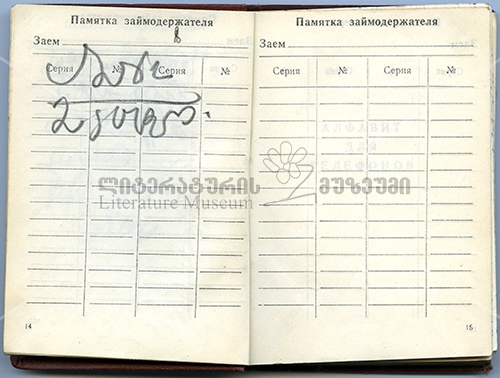 Памятка займодержателя
Заем
Серия № Серия №
14
Памятка займодержателя
Заем
Серия № Серия №
АЛФАВИТ
ДЛЯ
ТЕЛЕФОНОВ
15
ლიტერატურის მუზეუმი
Literature Museum